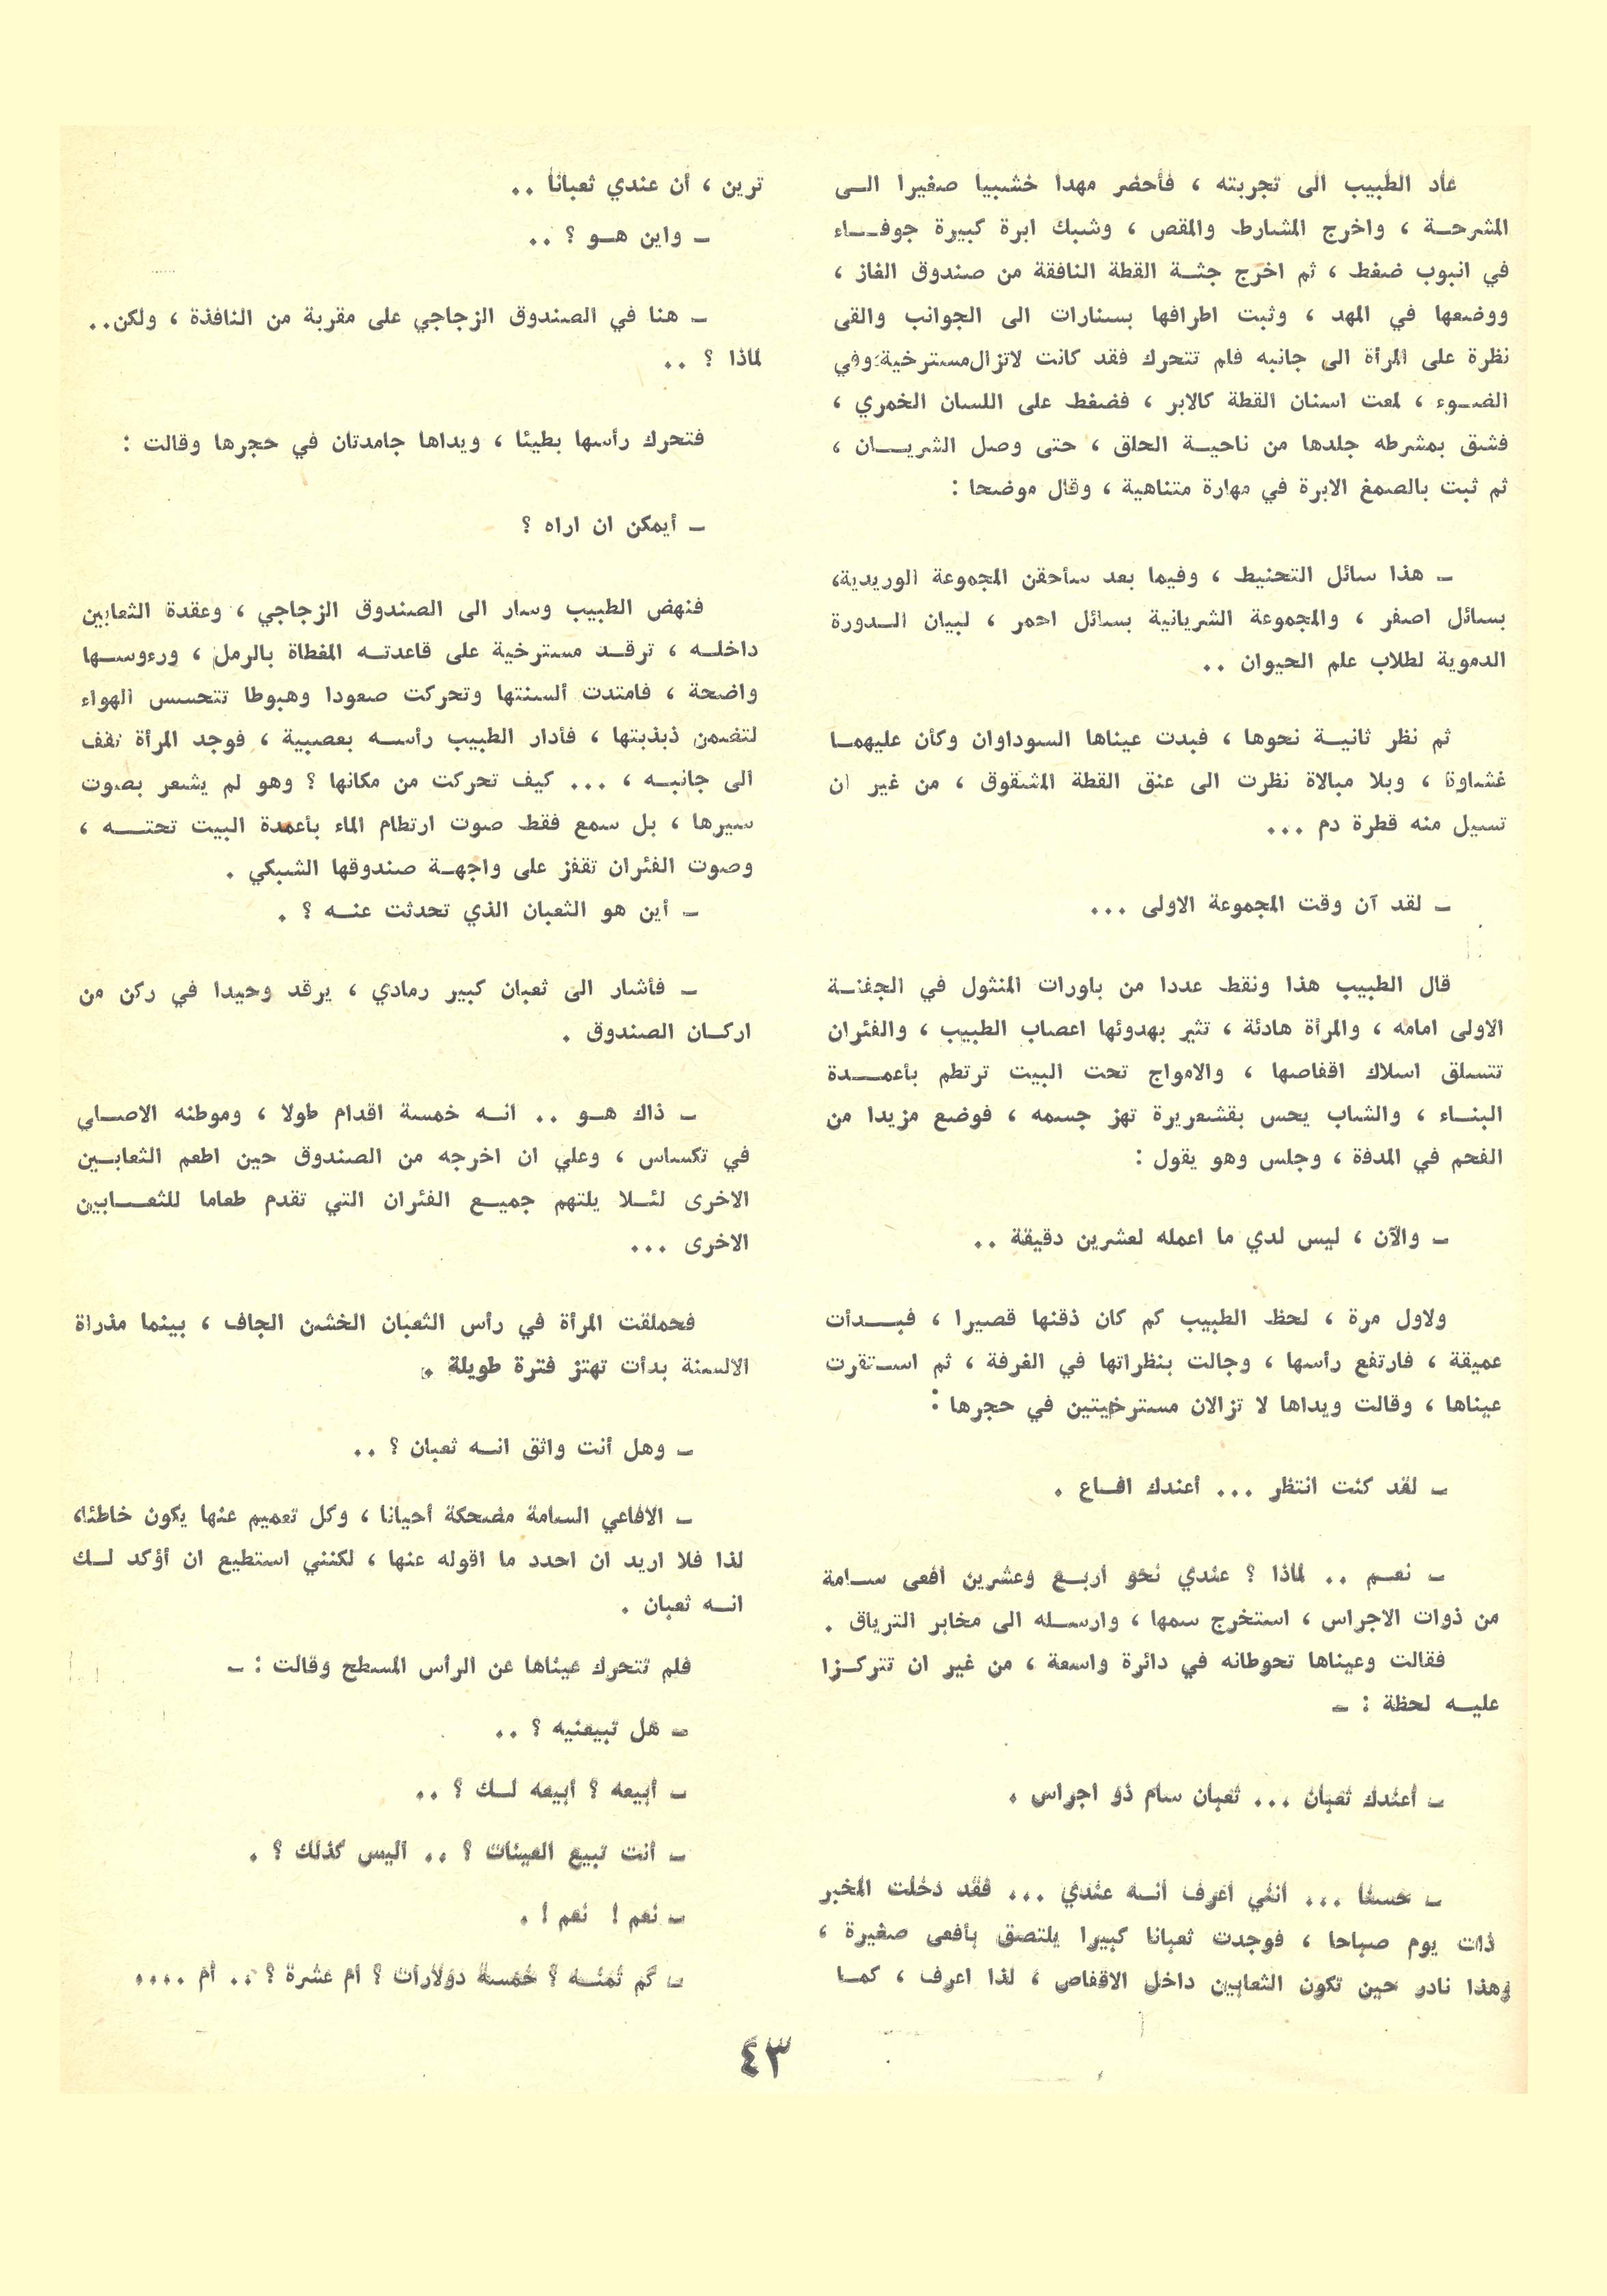 عاد الطبيب الى تجربته ، فأحضر مهدا خشبيا صغيرا الى
المشرحة ، واخرج المشارط والمقص ، وشبك ابرة كبيرة جوفاء
في انبوب ضغط ، ثم اخرج جثة القطة النافقة من صندوق الغاز ،
ووضعها في المهد ، وثبت اطرافها بسنارات الى الجوانب والقى
نظرة على المرأة الى جانبه فلم تتحرك فقد كانت لاتزال مسترخية وفي
الضوء ، لمعت اسنان القطة كالابر ، فضغط على اللسان الخمري ،
فشق بمشرطه جلدها من ناحية الحلق ، حتى وصل الشريان ،
ثم ثبت بالصمغ الابرة في مهارة متناهية ، وقال موضحا :
ـ هذا سائل التحنيط ، وفيما بعد سأحقن المجموعة الوريدية،
بسائل اصفر ، والمجموعة الشريانية بسائل احمر ، لبيان الدورة
الدموية لطلاب علم الحيوان ..
ثم نظر ثانية نحوها ، فبدت عيناها السوداوان وكأن عليهما
غشاوة ، وبلا مبالاة نظرت الى عنق القطة المشقوق ، من غير ان
تسيل منه قطرة دم ...
ـ لقد آن وقت المجموعة الاولى ...
قال الطبيب هذا ونقط عددا من باورات المنثول في الجفنة
الاولى امامه ، والمرأة هادئة ، تثير بهدوئها اعصاب الطبيب ، والفئران
تتسلق اسلاك اقفاصها ، والامواج تحت البيت ترتطم بأعمدة
البناء ، والشاب يحس بقشعريرة تهز جسمه ، فوضع مزيدا من
الفحم في المدفة ، وجلس وهو يقول :
ـ والآن ، ليس لدي ما اعمله لعشرين دقيقة ..
ولاول مرة ، لحظ الطبيب كم كان ذقنها قصيرا ، فبدأت
عميقة ، فارتفع رأسها ، وجالت بنظراتها في الغرفة ، ثم استقرت
عيناها ، وقالت ويداها لا تزالان مسترخيتين في حجرها :
ـ لقد كنت انتظر ... أعندك افاع .
ـ نعم .. لماذا ؟ عندي نحو أربع وعشرين أفعى سامة
من ذوات الاجراس ، استخرج سمها ، وارسله الى مخابر الترياق .
فقالت وعيناها تحوطانه في دائرة واسعة ، من غير ان تتركزا
عليه لحظة : ـ
ـ أعندك ثعبان ... ثعبان سام ذو اجراس .
ـ حسنا ... أنني أعرف أنه عندي ... فقد دخلت المخبر
ذات يوم صباحا ، فوجدت ثعبانا كبيرا يلتصق بأفعى صغيرة ،
وهذا نادر حين تكون الثعابين داخل الاقفاص ، لذا اعرف ، كما
ترين ، أن عندي ثعبانا ..
ـ واين هو ؟ ..
ـ هنا في الصندوق الزجاجي على مقربة من النافذة ، ولكن..
لماذا ؟ ..
فتحرك رأسها بطيئا ، ويداها جامدتان في حجرها وقالت :
ـ أيمكن ان اراه ؟
فنهض الطبيب وسار الى الصندوق الزجاجي ، وعقدة الثعابين
داخله ، ترقد مسترخية على قاعدته المغطاة بالرمل ، ورءوسها
واضحة ، فامتدت ألسنتها وتحركت صعودا وهبوطا تتحسس الهواء
لتضمن ذبذبتها ، فأدار الطبيب رأسه بعصبية ، فوجد المرأة تقف
الى جانبه ، ... كيف تحركت من مكانها ؟ وهو لم يشعر بصوت
سيرها ، بل سمع فقط صوت ارتطام الماء بأعمدة البيت تحته ،
وصوت الفئران تقفز على واجهة صندوقها الشبكي .
ـ أين هو الثعبان الذي تحدثت عنه ؟ .
ـ فأشار الى ثعبان كبير رمادي ، يرقد وحيدا في ركن من
اركان الصندوق .
ـ ذاك هو .. انه خمسة اقدام طولا ، وموطنه الاصلي
في تكساس ، وعلي ان اخرجه من الصندوق حين اطعم الثعابين
الاخرى لئلا يلتهم جميع الفئران التي تقدم طعاما للثعابين
الاخرى ...
فحملقت المرأة في رأس الثعبان الخشن الجاف ، بينما مذراة
الالسنة بدأت تهتز فترة طويلة .
ـ وهل أنت واثق انه ثعبان ؟ ..
ـ الافاعي السامة مضحكة أحيانا ، وكل تعميم عنها يكون خاطئا،
لذا فلا اريد ان احدد ما اقوله عنها ، لكنني استطيع ان أؤكد لك
انه ثعبان .
فلم تتحرك عيناها عن الرأس المسطح وقالت : ـ
ـ هل تبيعنيه ؟ ..
ـ أبيعه ؟ أبيعه لك ؟ ..
ـ أنت تبيع العينات ؟ .. اليس كذلك ؟ .
ـ نعم ! نعم ! .
ـ كم ثمنه ؟ خمسة دولارات ؟ أم عشرة ؟ .. أم ....
٤٣